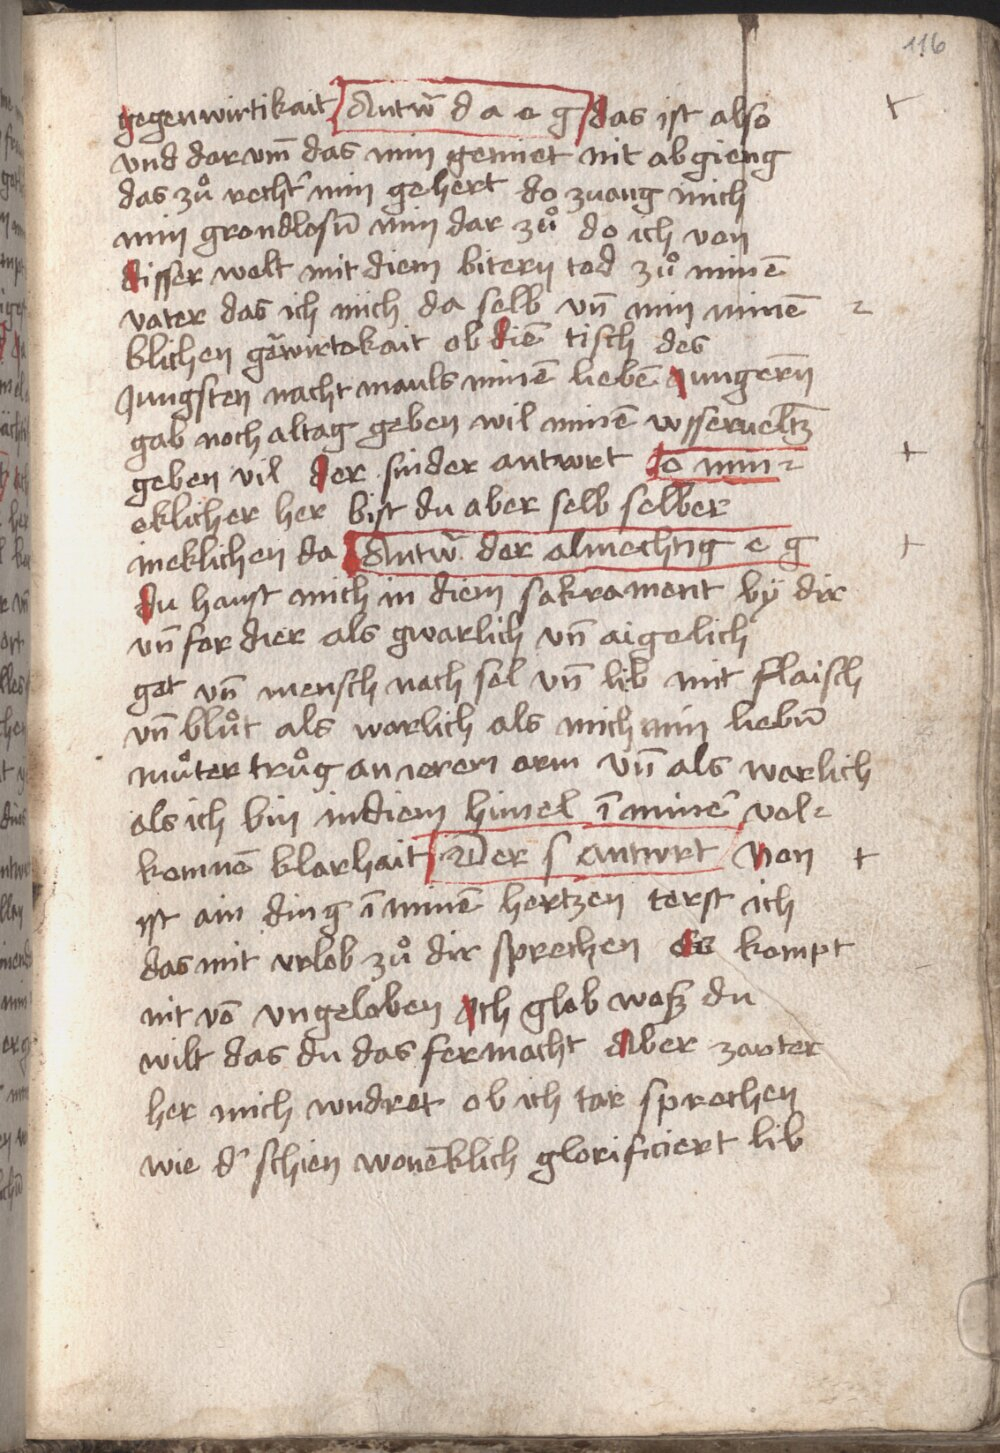 116
gegenwirtikait Antw̄ d a e g das ist also
vnd dar vm̄ das min gemiet nit ab gieng
das zů recht min gehert do zwang mich
min grondlosū min dar zů do ich von
disser welt mit diem bitern tod zů minē
vater das ich mich da selb vn̄ min minē
blichen gē̄wirtokait ob diē tisch des
Jungsten nacht mauls minē liebē Jungerēn
gab noch altag geben wil minē vsserveltz
geben vil der sinder antwrt o min
eklicher her bist du aber selb selber
meklichen da Antw̄ der almechtig e g
du haust mich in diem sakrament by dir
vn̄ for dier als gwarlich vn̄ aigelich
got vn̄ mensch nach sel vn̄ lib mit flaisch
vn̄ blůt als warlich als mich min liebū
můter trůg an ierem arm vn̄ als warlich
als ich bin in diem himel ī minē vol
komnē klarhait Der s antwrt Non
ist ain ding ī minē hertzen terst ich
das mit vrlob zů dir sprechen es kompt
nit vō vngeloben Ich glob wasz du
wilt das du das fermacht Aber zarter
her mich wndret ob ich tar sprechen
wie d' schien wonēklich glorificiert lib